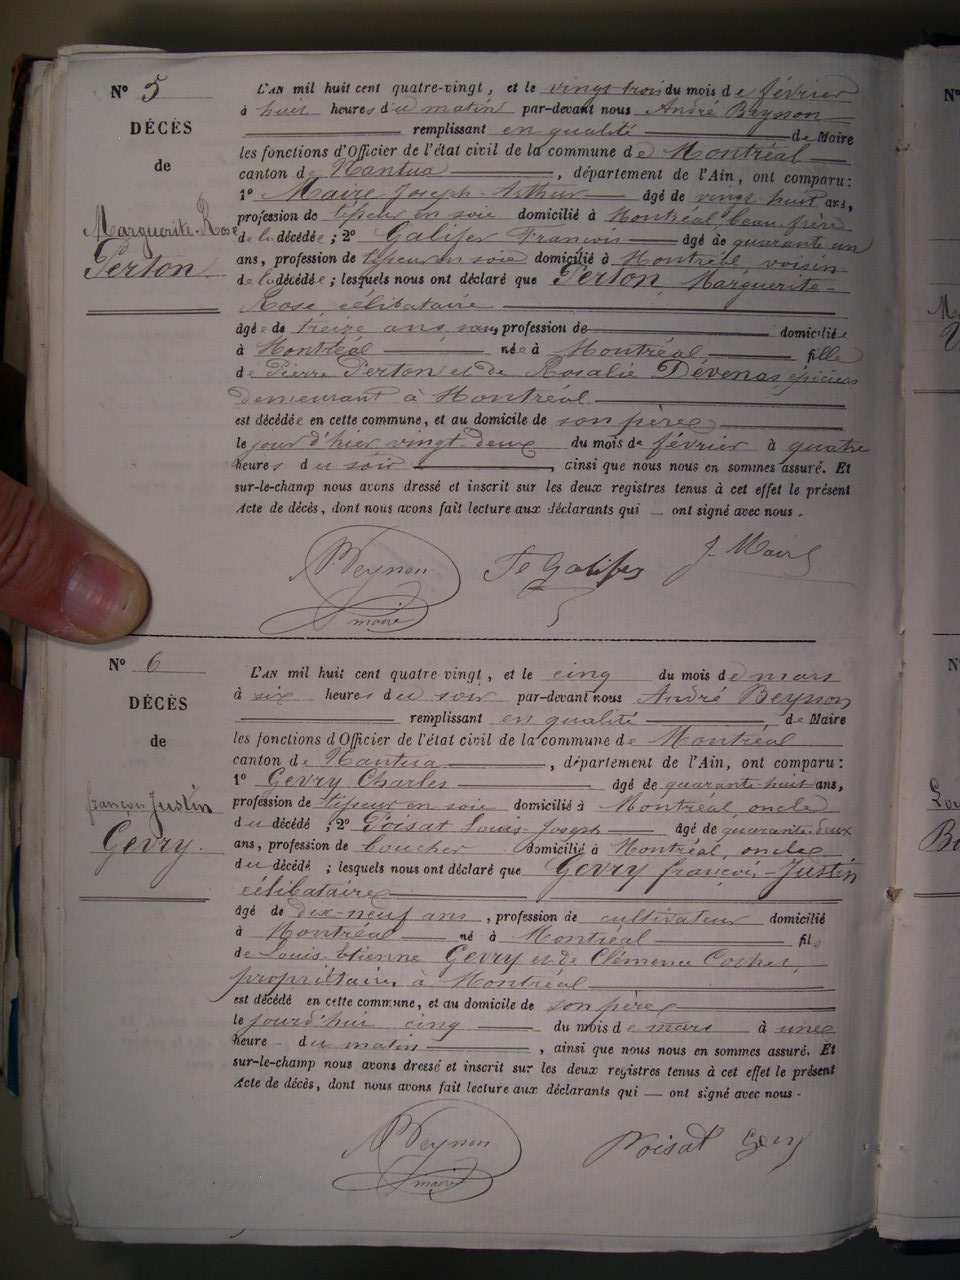 N° 5
DÉCÈS
de
Marguerite-Rose
Perton
L'AN mil huit cent quatre-vingt, et le vingt trois du mois de février
à huit heures du matin par-devant nous André Beynon
remplissant en qualité de Maire
les fonctions d'Officier de l'état civil de la commune de Montréal
canton de Nantua, département de l'Ain, ont comparu:
1° Maire Joseph Arthur âgé de vingt huit ans,
profession de tisseur en soie domicilié à Montréal, beau frère
de la décédée; 2° Galifer François âgé de quarante un
ans, profession de tisseur en soie domicilié à Montréal, voisin
de la décédée; lesquels nous ont déclaré que Perton, Marguerite-
Rose célibataire
âgée de treize ans, sans profession de domiciliée
à Montréal née à Montréal, fille
de Pierre Perton et de Rosalie Devenas, épiciers
demeurant à Montréal
est décédée en cette commune, et au domicile de son père
le jour d'hier vingt deux du mois de février à quatre
heures du soir, ainsi que nous nous en sommes assuré. Et
sur-le-champ nous avons dressé et inscrit sur les deux registres tenus à cet effet le présent
Acte de décès, dont nous avons fait lecture aux déclarants qui — ont signé avec nous.
Beynon Fs Galifer J. Maire
maire
N° 6
DÉCÈS
de
françois Justin
Gevry.
L'AN mil huit cent quatre-vingt, et le cinq du mois de mars
à six heures du soir par-devant nous André Beynon
remplissant en qualité, de Maire
les fonctions d'Officier de l'état civil de la commune de Montréal
canton de Nantua, département de l'Ain, ont comparu:
1° Gevry Charles âgé de quarante huit ans,
profession de tisseur en soie domicilié à Montréal, oncle
du décédé; 2° Poisat Louis-Joseph âgé de quarante-deux
ans, profession de boucher domicilié à Montréal, oncle
du décédé; lesquels nous ont déclaré que Gevry françois-Justin
célibataire
âgé de dix-neuf ans, profession de cultivateur domicilié
à Montréal né à Montréal fils
de Louis-Etienne Gevry et de Clémence Cochet,
propriétaires à Montréal
est décédé en cette commune, et au domicile de son père
le jourd'hui cinq du mois de mars à une
heure du matin, ainsi que nous nous en sommes assuré. Et
sur-le-champ nous avons dressé et inscrit sur les deux registres tenus à cet effet le présent
Acte de décès, dont nous avons fait lecture aux déclarants qui — ont signé avec nous.
Beynon Poisat Gevry
maire